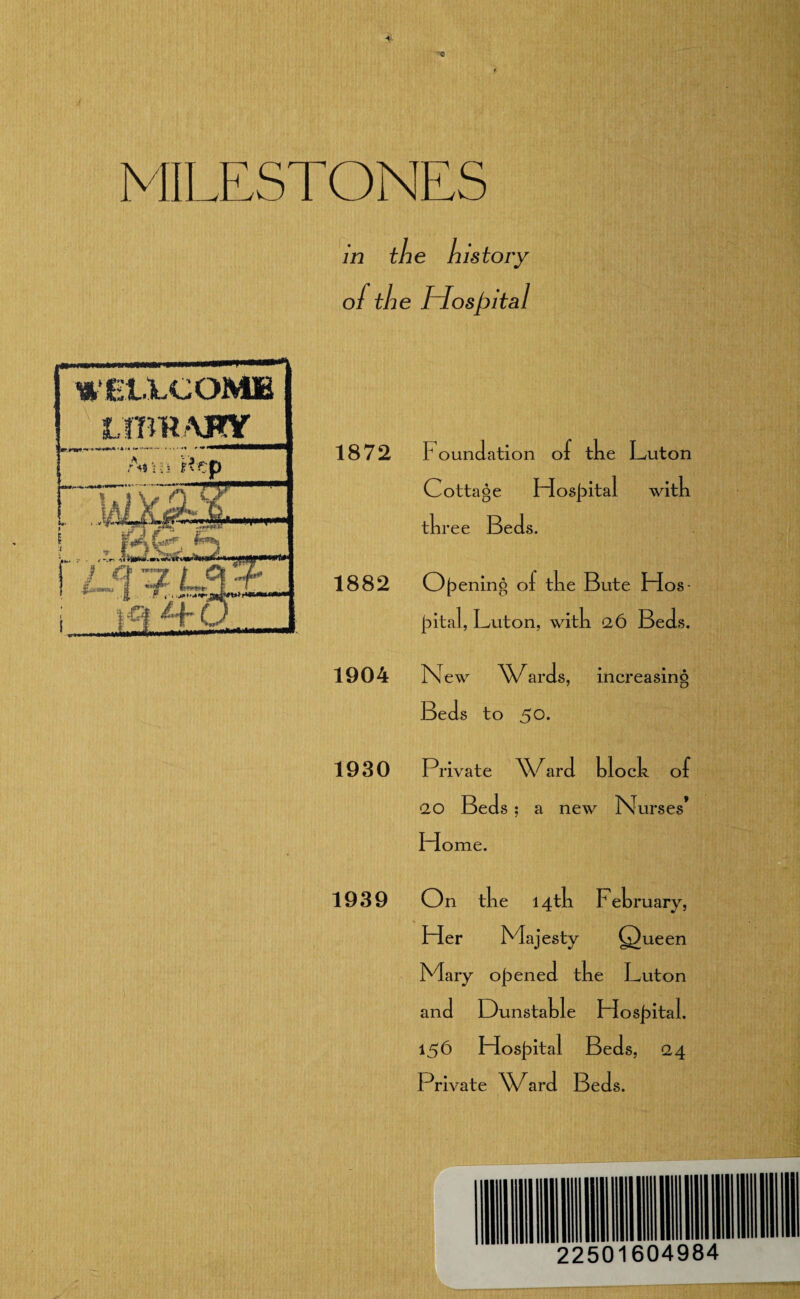 MILESTONES
in the history
of the Hospital
WELLCOME
LIBRARY
Ann Rep
WX28
BE5
L97L97
1940
1872 Foundation of the Luton
Cottage Hospital with
three Beds.
1882 Opening of the Bute Hos-
pital, Luton, with 26 Beds.
1904 New Wards, increasing
Beds to 50.
1930 Private Ward block of
20 Beds; a new Nurses'
Home.
1939 On the 14th February,
Her Majesty Queen
Mary opened the Luton
and Dunstable Hospital.
156 Hospital Beds, 24
Private Ward Beds.
22501604984